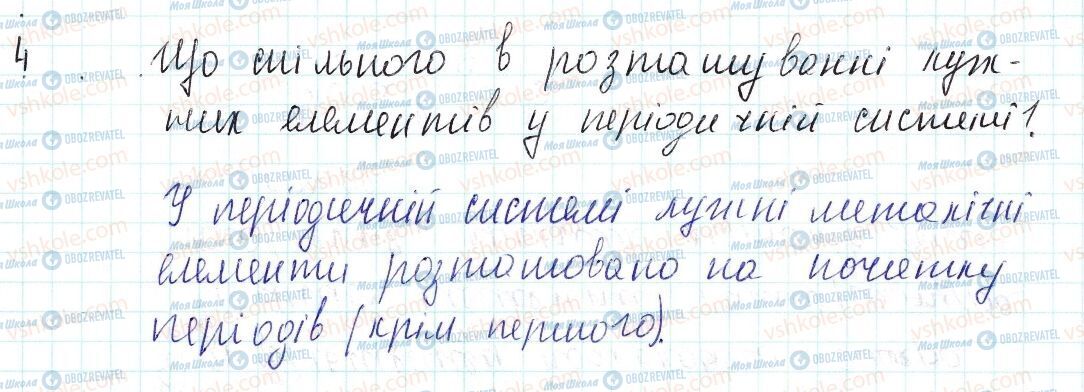 4. Що спільного в розташуванні луж-
них елементів у періодичній системі?
У періодичній системі лужні металічні
елементи розташовано на початку
періодів (крім першого).